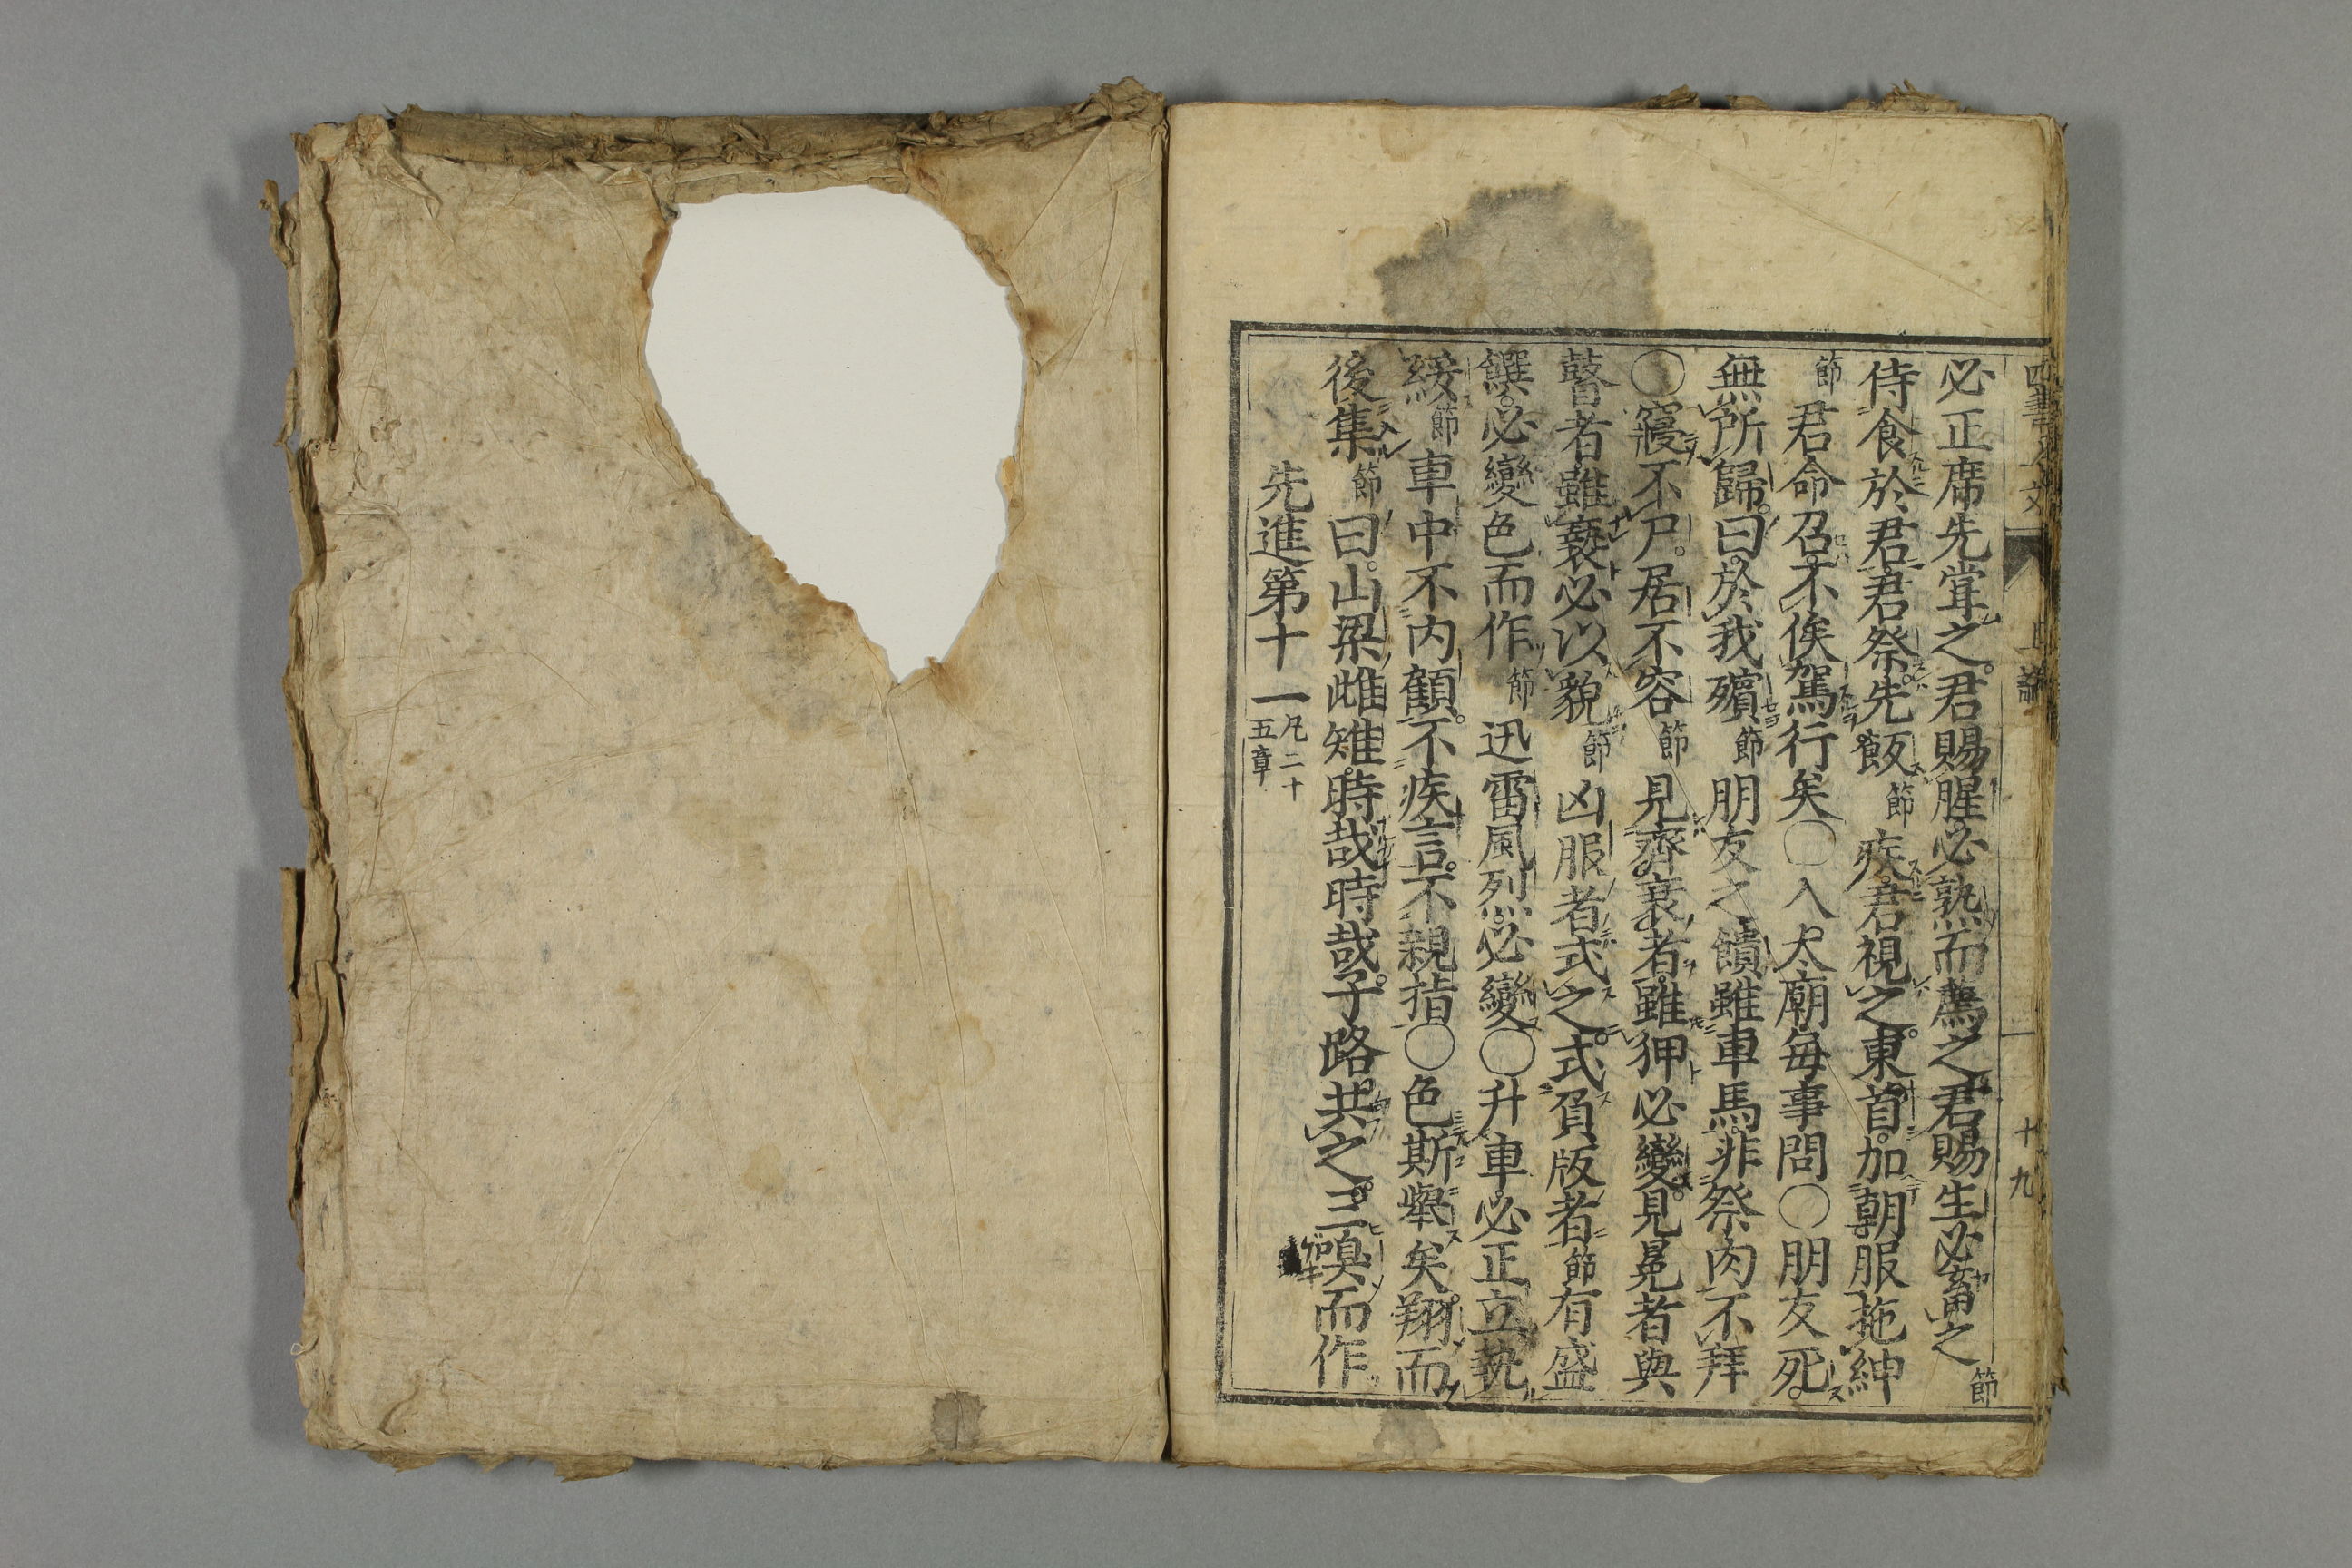 必正席先甞之。君賜腥必熟而薦之君賜生必畜之節
侍食於君君祭。先飯節疾君視之。東首。加朝服拖紳
節君命召。不俟駕行矣〇入太廟每事問〇朋友死。
無所歸。曰。於我殯節朋友之饋雖車馬。非祭肉不拜
〇寢不尸。居不容節見齊衰者。雖狎必變。見冕者與
瞽者雖䙝必以貌節凶服者式之。式負版者節有盛
饌。必變色而作節迅雷風烈。必變〇升車。必正立執
綏節車中不内顧。不疾言。不親指〇色斯擧矣。翔而
後集節曰。山梁雌雉。時哉時哉。子路共之。三嗅而作
先進第十一凡二十五章
十九